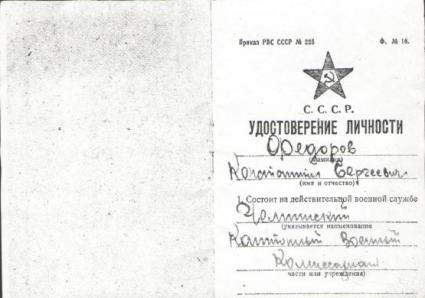 Приказ РВС СССР № 225 Ф. № 16.
С. С. С. Р.
УДОСТОВЕРЕНИЕ ЛИЧНОСТИ
Федоров
(фамилия)
Константин Сергеевич
(имя и отчество)
1. Состоит на действительной военной службе
(указывается наименование
Военный
Комиссариат
части или учреждения)